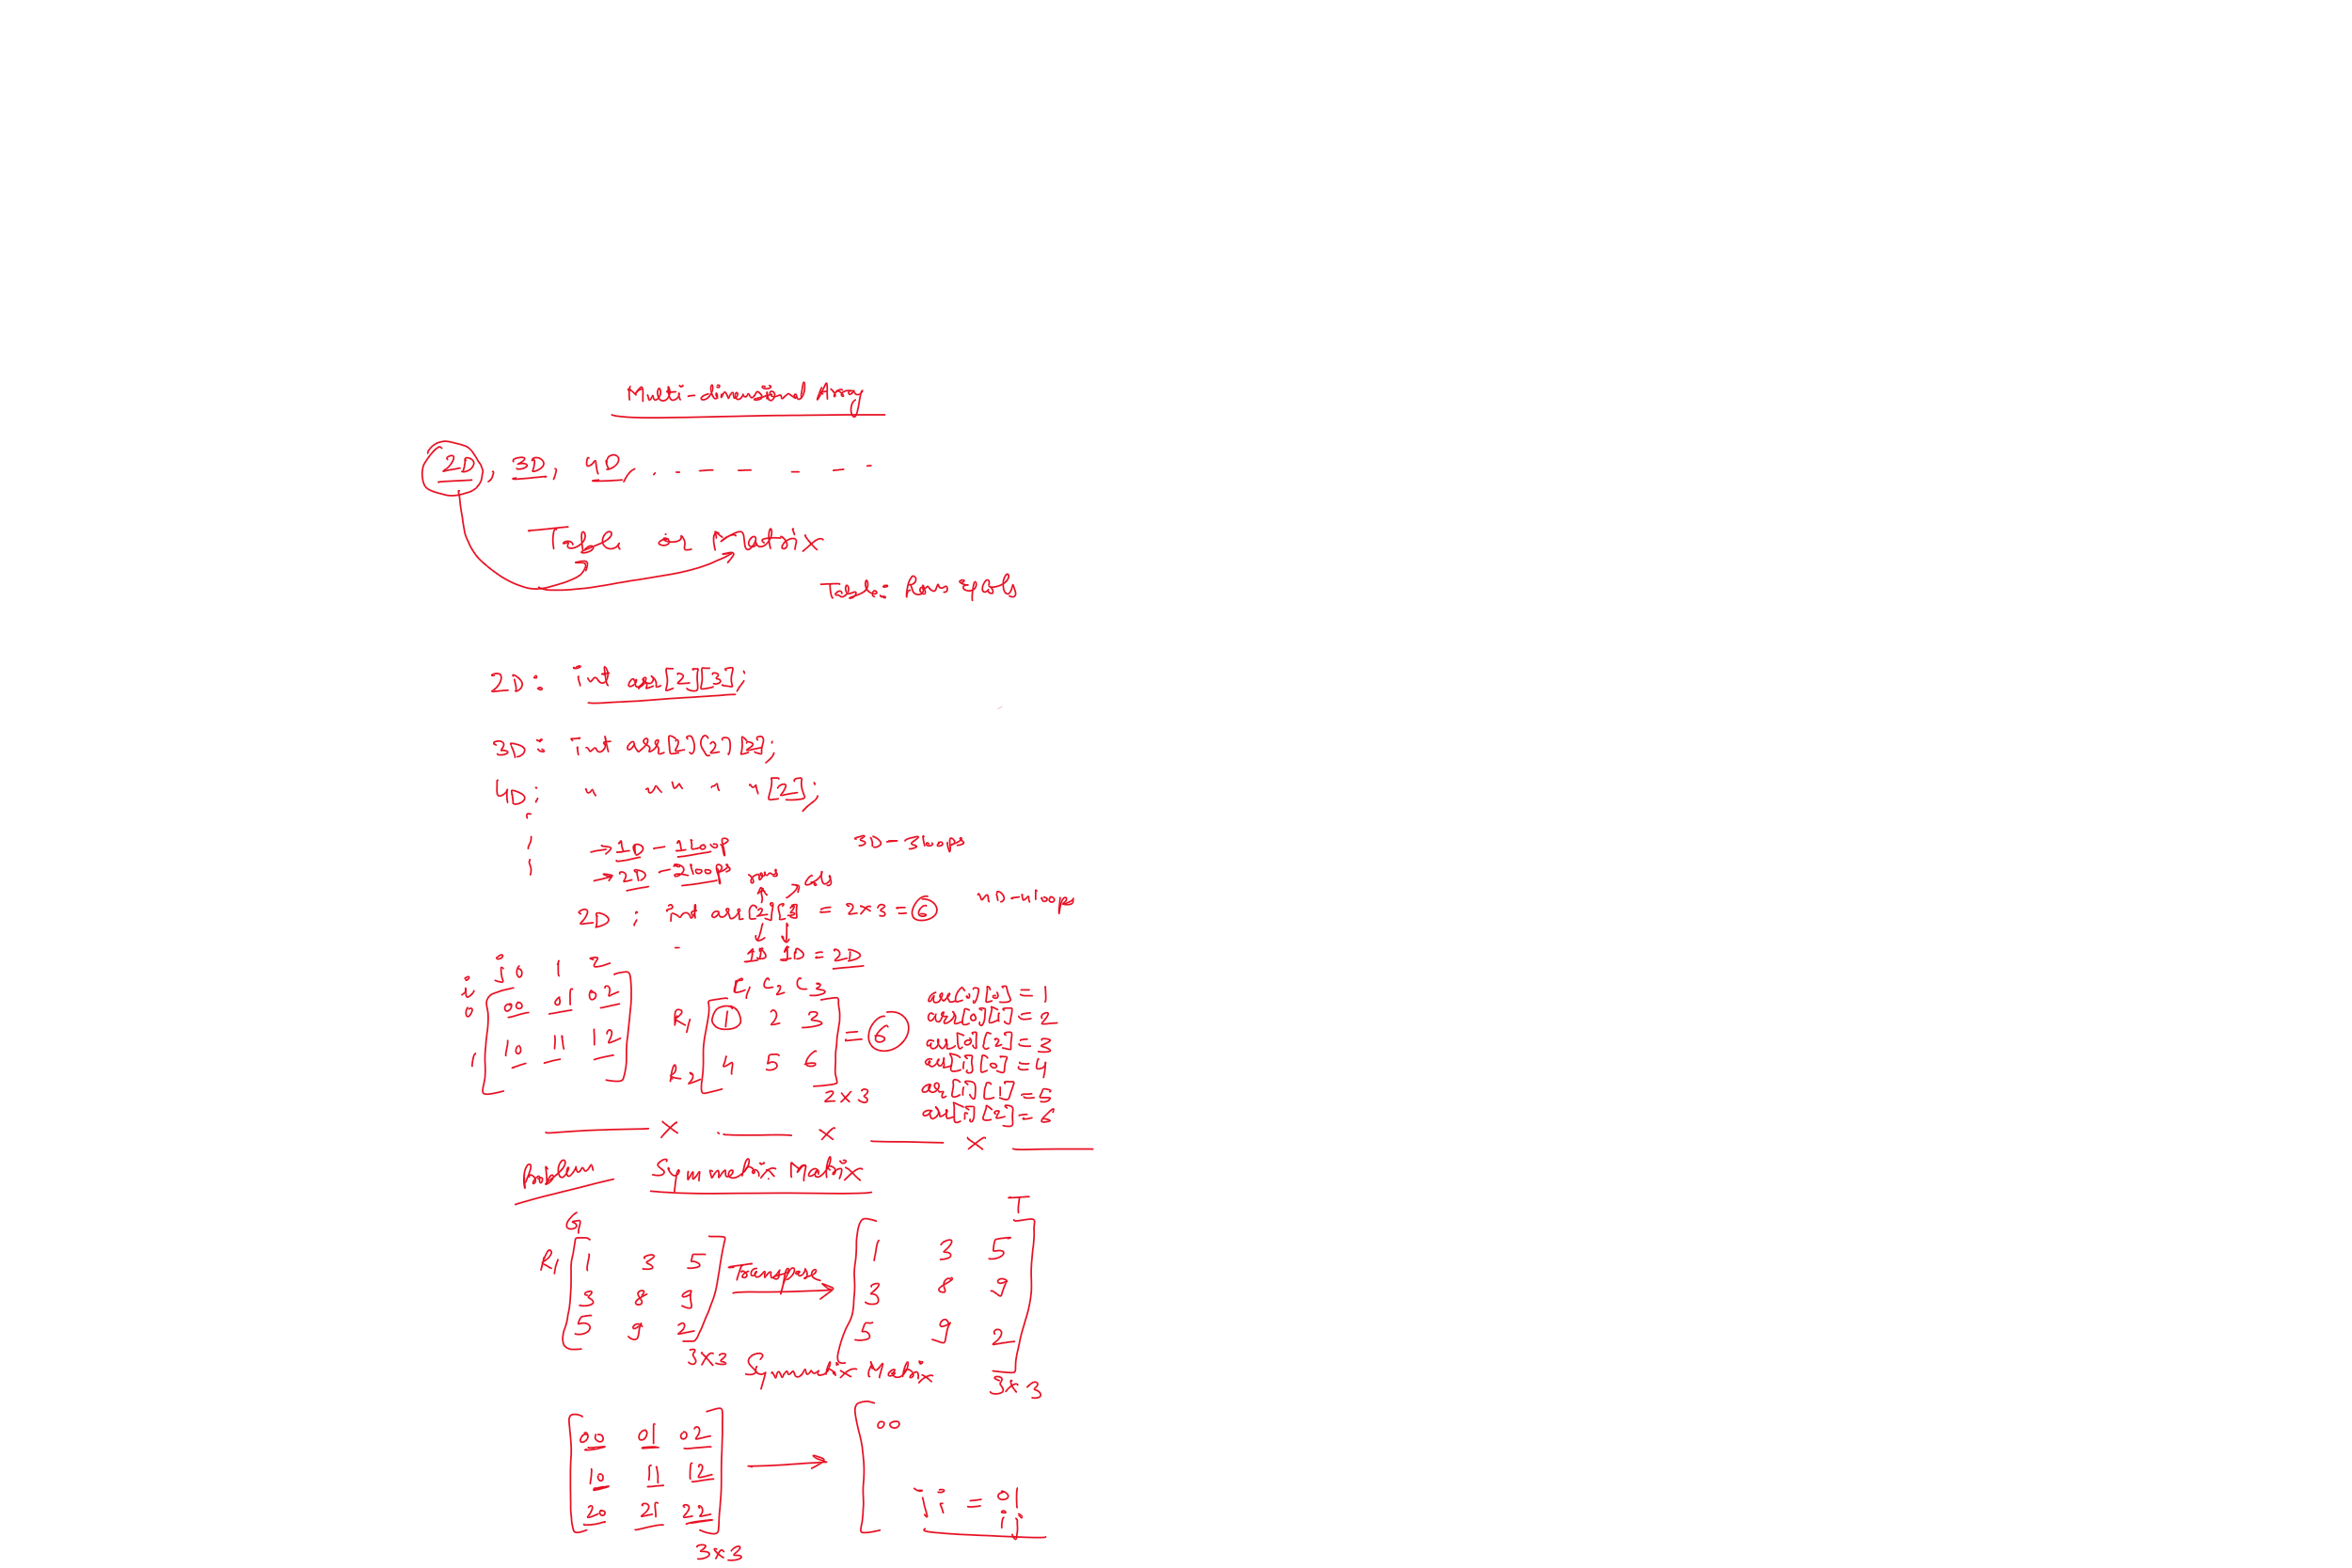 Multi-dimensional Array
2D, 3D, 4D, . - - - - - -
Table or Matrix
Table: Rows & Cols
2D: int arr[2][3];
3D: int arr[2][2][2];
4D: " " " " "[2];
→ 1D - 1 Loop
3D - 3 loops
→ 2D - 2 loops
rows cols
nD - n loops
2D : int arr[2][3] = 2 x 3 = 6
1D 1D = 2D
j 0 1 2
i
0 00 01 02
1 10 11 12
C1 C2 C3
R1 1 2 3
R2 4 5 6
= 6
2 x 3
arr[0][0] = 1
arr[0][1] = 2
arr[0][2] = 3
arr[1][0] = 4
arr[1][1] = 5
arr[1][2] = 6
x x x
Problem Symmetrix Matrix
G
R1 1 3 5
3 8 9
5 9 2
3x3
Transpose
T
1 3 5
3 8 9
5 9 2
3x3
Symmetrix Matrix
00 01 02
10 11 12
20 21 22
3x3
00
ji = 01
ij